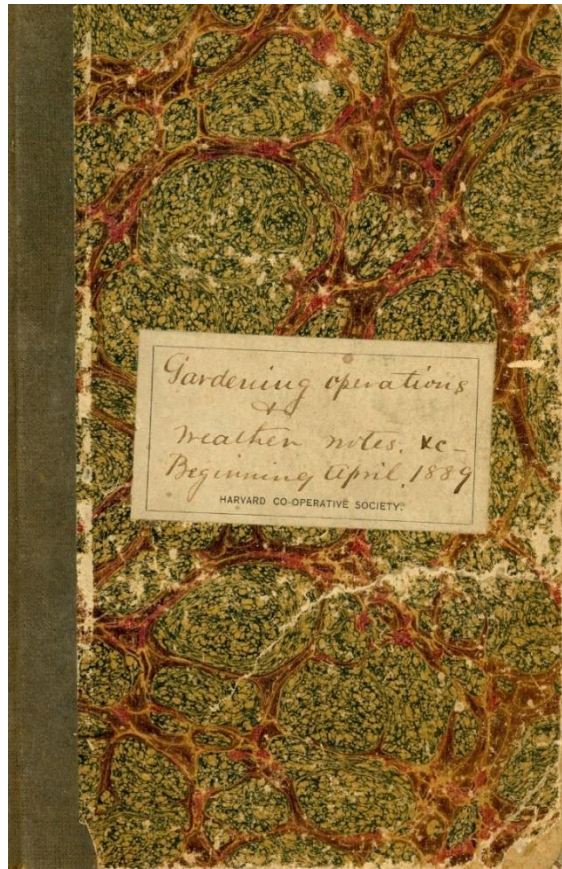 Gardening operations
&
Weather notes. &c-
Beginning April. 1889
HARVARD CO-OPERATIVE SOCIETY.